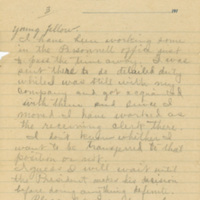 3
young fellow.
I have been working some
in the Personnell office just
to pass the time away. I was
sent there to do detailed duty
whilst was still with my
Company and got acquainted
with them and since I
moved I have worked as
the receiving clerk there.
dont know whether I
want to be transferred to that
position or not.
I guess I will wait until
the President makes his decision
before doing anything definite.